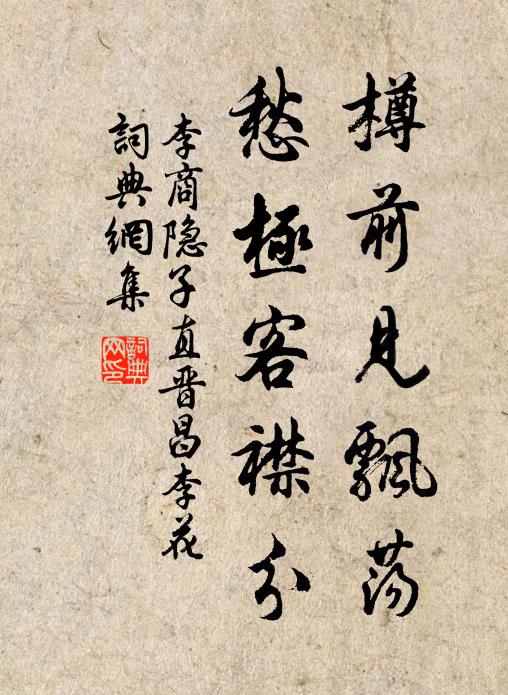 樽前見飄蕩
愁極客襟分
李商隐子直晋昌李花
詞典網集
詞典網印